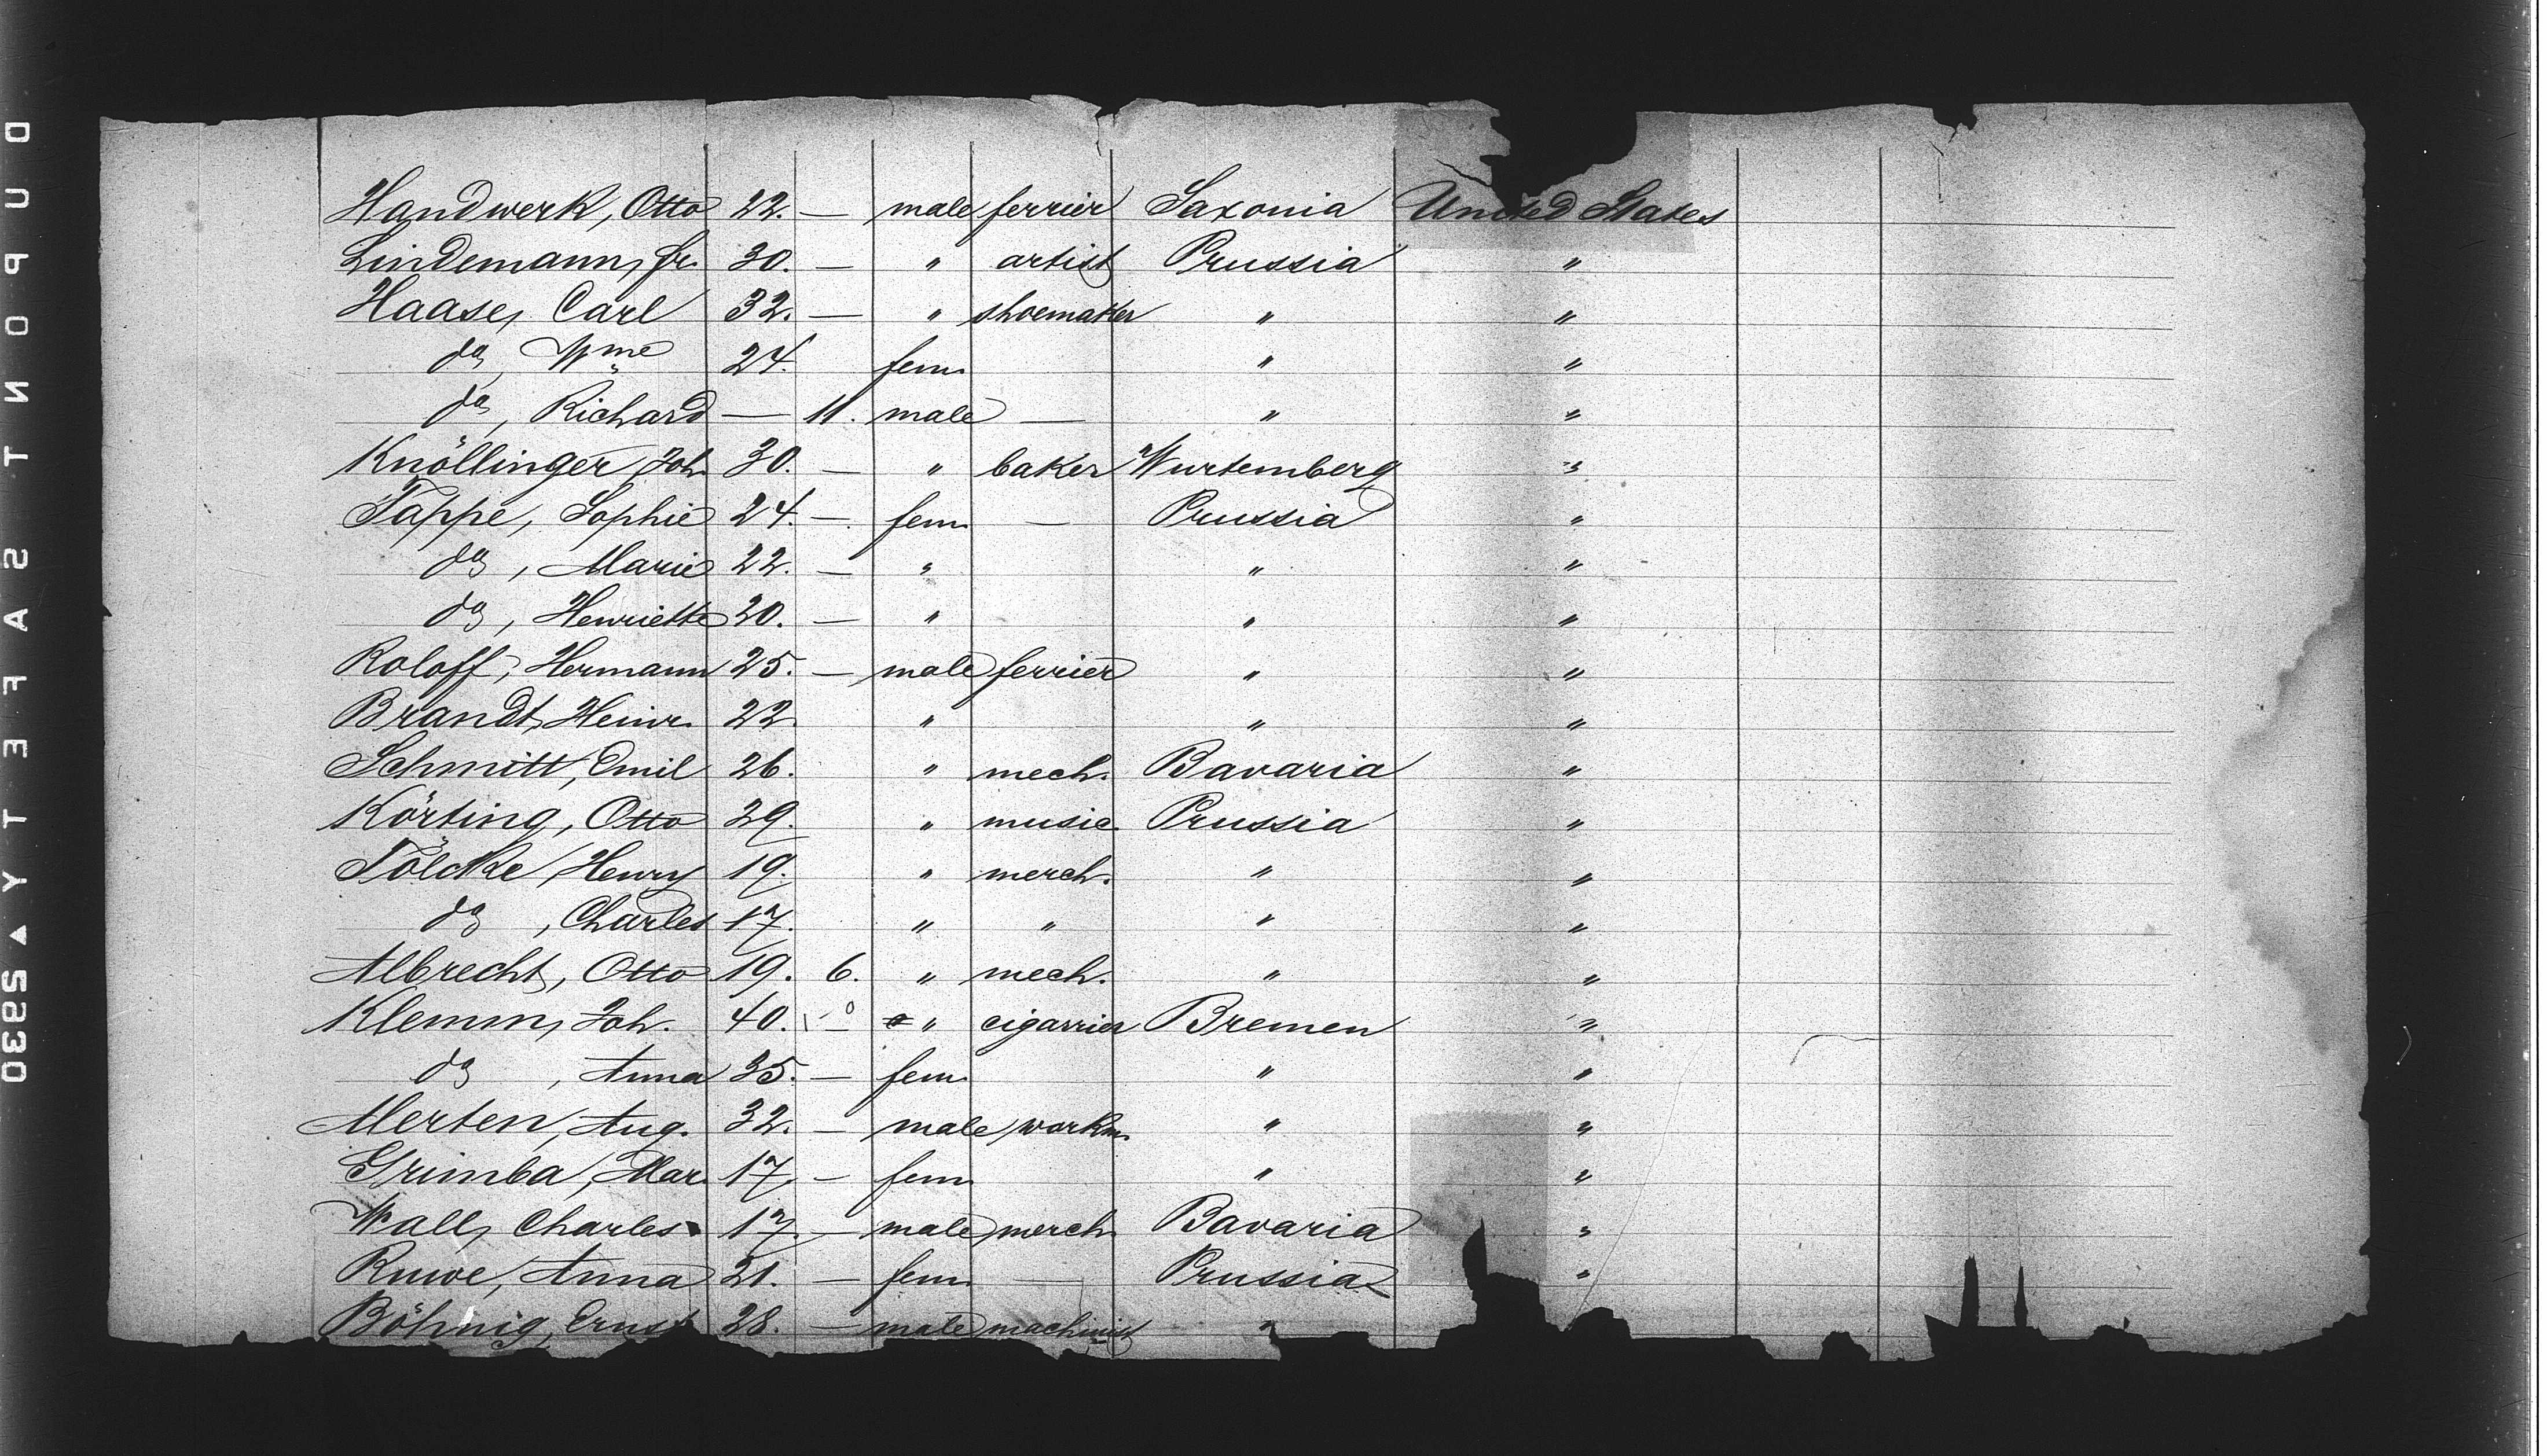 Handwerk, Otto 22. — male ferrier Saxonia United States
Lindemann, Fr. 30. — " artist Prussia "
Haase, Carl 32. — " shoemaker " "
do, Wme 24. fem. " "
do, Richard — 11. male — " "
Knöllinger, Joh. 30. — " baker Wurtemberg "
Tappe, Sophie 24. — fem. — Prussia "
do, Marie 22. — " " "
do, Henriette 20. — " " "
Roloff, Hermann 25. — male ferrier " "
Brandt, Heinr. 22 " " "
Schmitt, Emil 26. " mech. Bavaria "
Körting, Otto 29. " music. Prussia "
Tölcke, Henry 19. " merch. " "
do, Charles 17. " " " "
Albrecht, Otto 19. 6. " mech. " "
Klemm, Joh. 40. — " cigarrier Bremen "
do, Anna 35. — fem. " "
Merten, Aug. 32. — male workm. " "
Grimba, Mar. 17. — fem. " "
Wall, Charles 17. — male merch. Bavaria "
Ruwe, Anna 21. — fem. — Prussia "
Böhnig, Ernst 28. — male machinist "
DUPONT SAFETY ▲ 52930